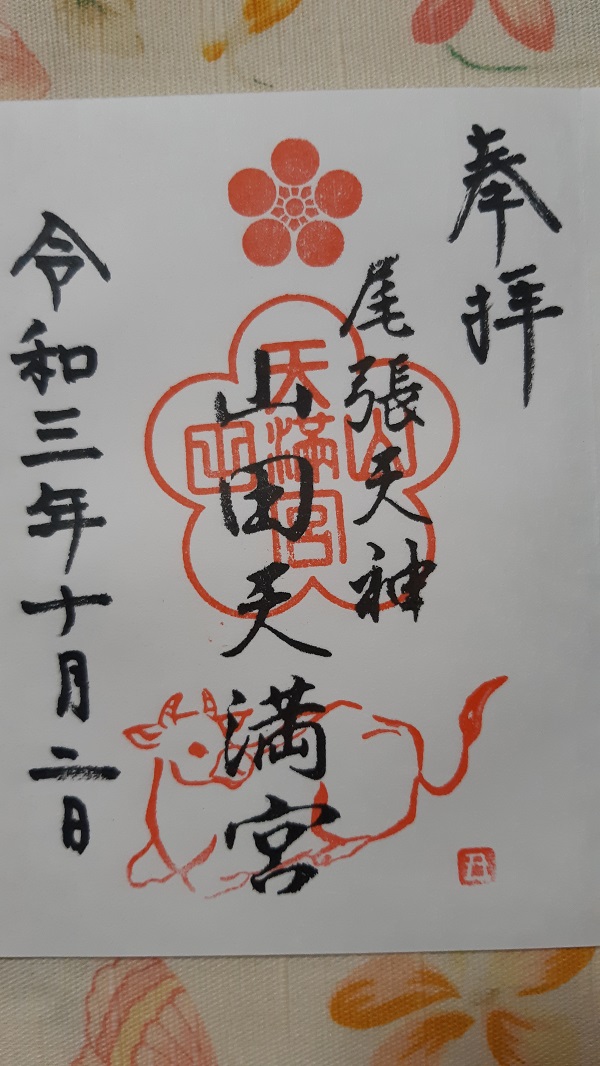 奉拝
尾張天神
山田天満宮
山田
天満宮
令和三年十月二日
丑